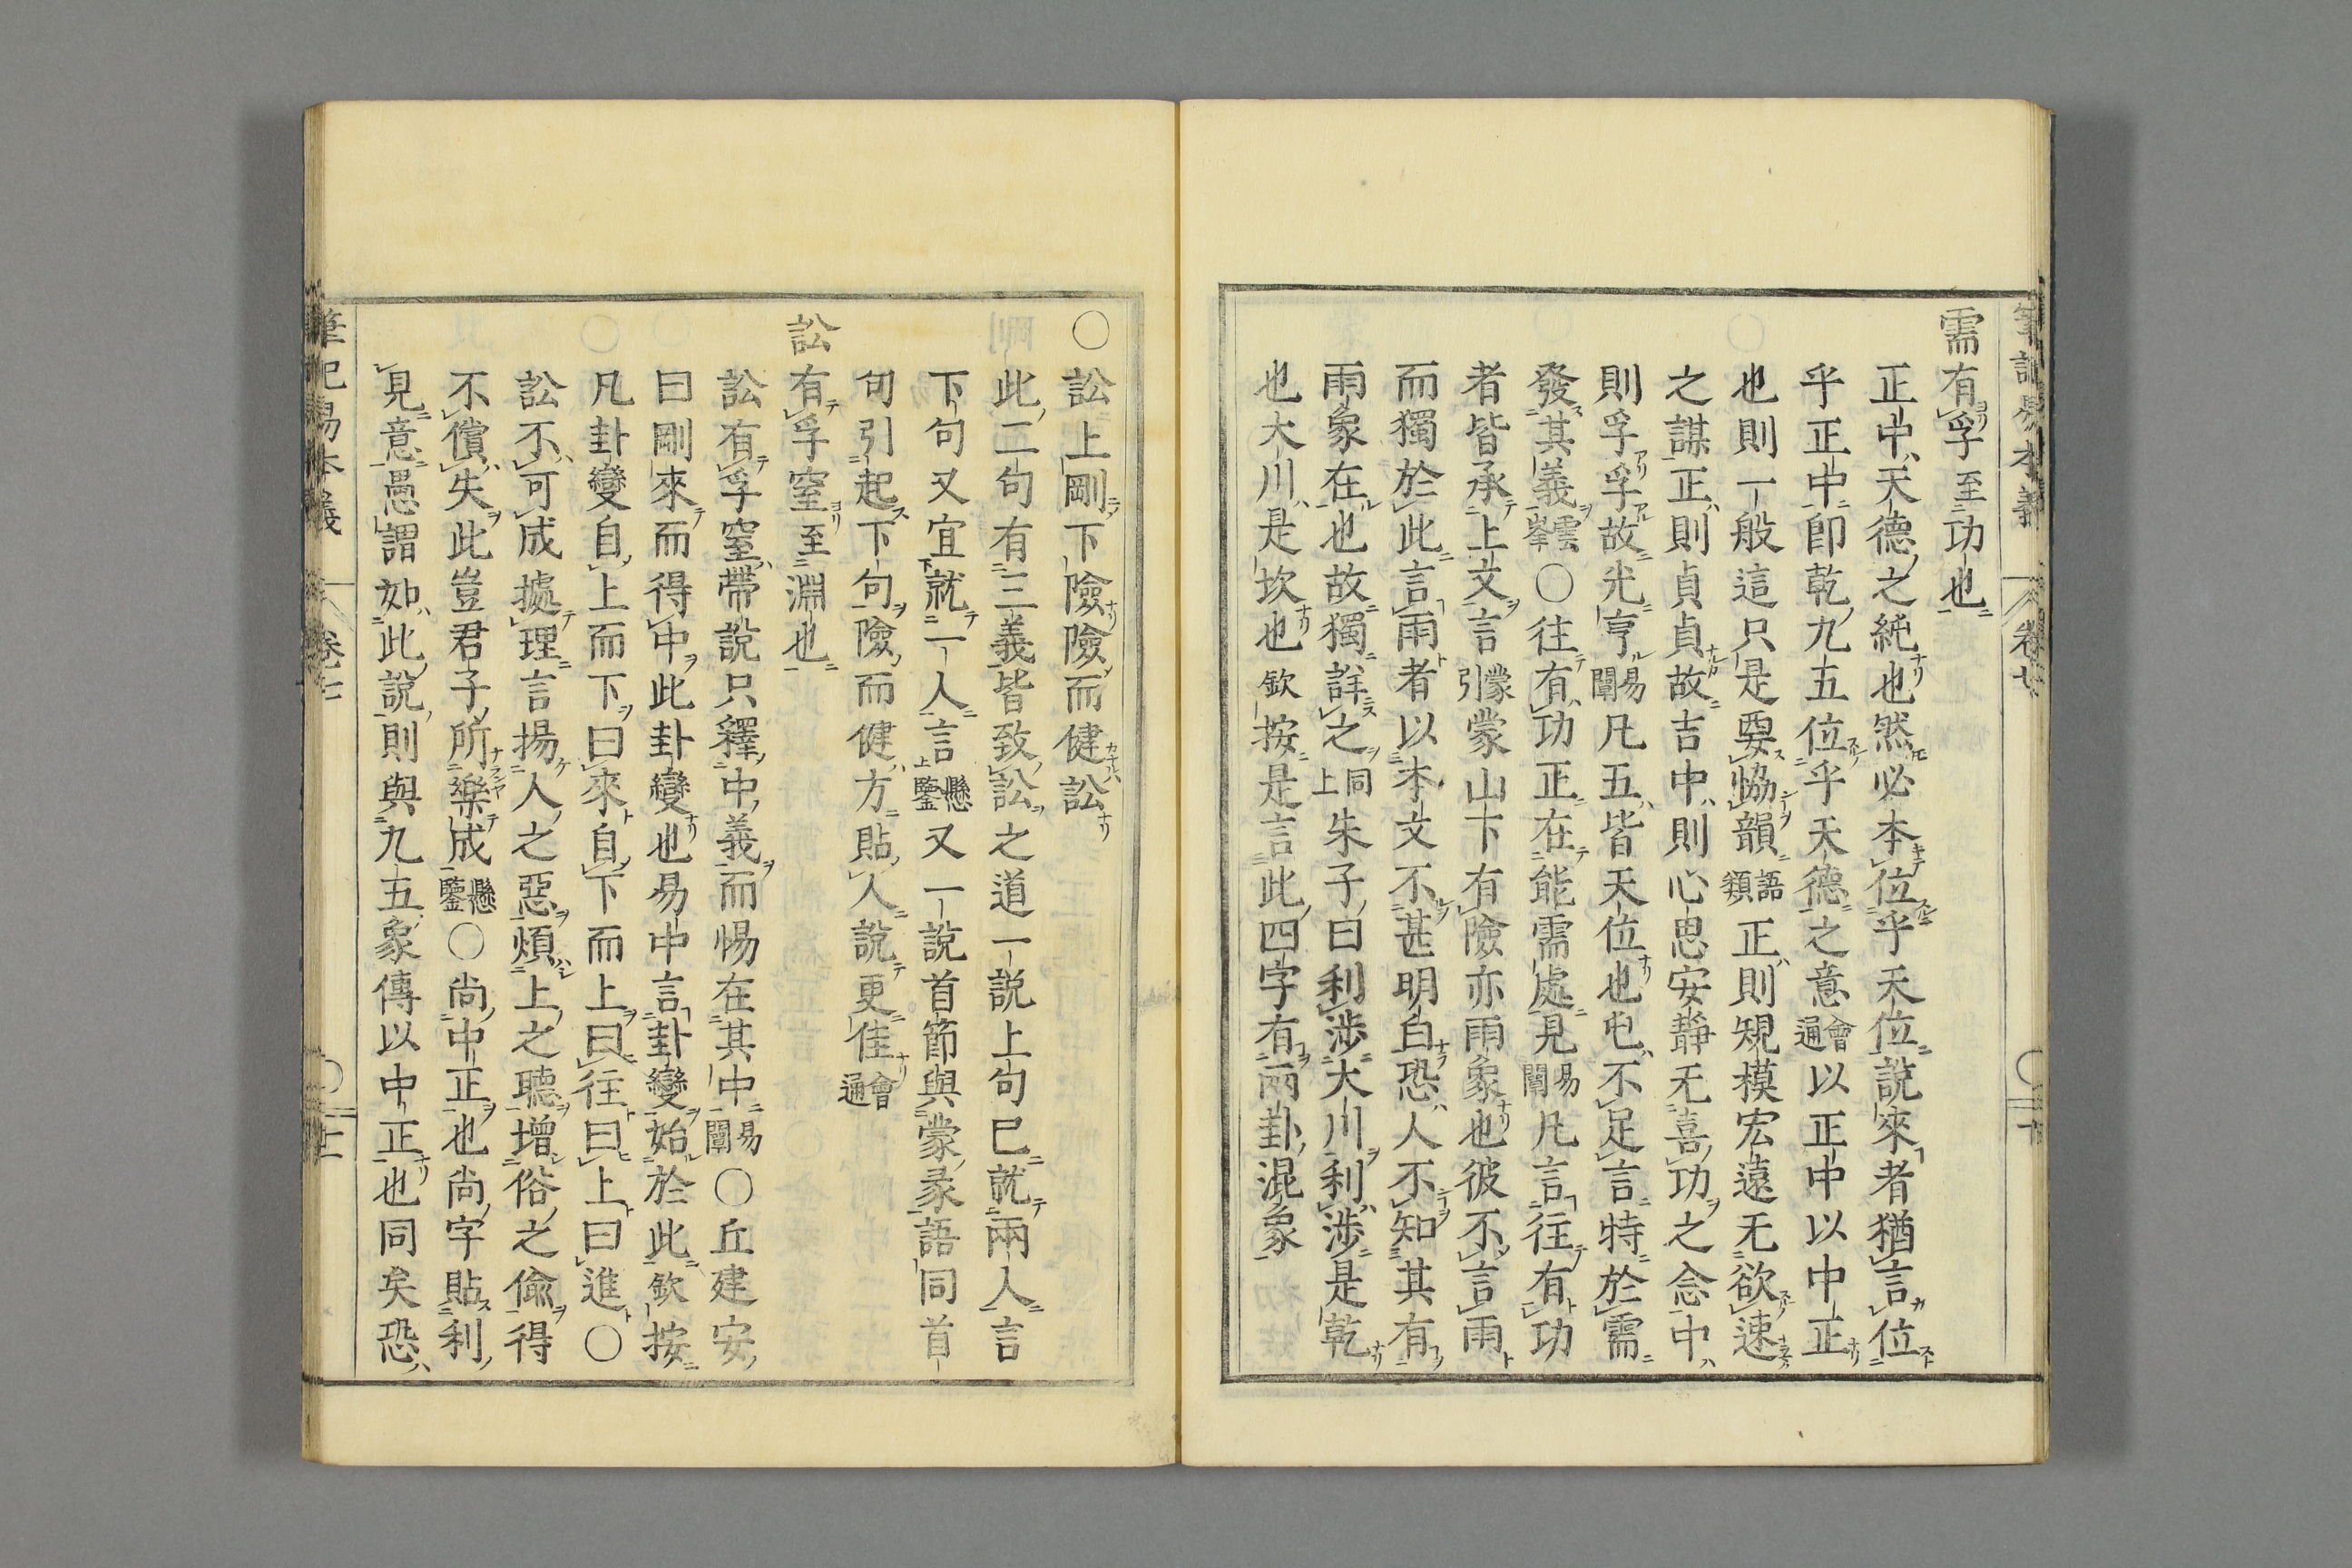 需有孚至功也
正中天德之純也然必本位乎天位說來者猶言位
乎正中即乾九五位乎天德之意會通以正中以中正
也則一般這只是要恊韻語類正則規模宏遠无欲速
之謀正則貞貞故吉中則心思安靜无喜功之念中
則孚孚故光亨易闡凡五皆天位也屯不足言特於需
發其義雲峯○往有功正在能需處見易闡凡言往有功
者皆承上文言蒙引蒙山下有險亦雨象也彼不言雨
而獨於此言雨者以本文不甚明白恐人不知其有
雨象在也故獨詳之同上朱子曰利涉大川利涉是乾
也大川是坎也欽按是言此四字有兩卦混象
○訟上剛下險險而健訟
此二句有三義皆致訟之道一說上句已就兩人言
下句又宜就一人言懸鑒上又一說首節與蒙彖語同首
句引起下句險而健方貼人說更佳會通
訟有孚窒至淵也
訟有孚窒帶說只釋中義而惕在其中易闡○丘建安
曰剛來而得中此卦變也易中言卦變始於此欽按
凡卦變自上而下曰來自下而上曰往曰上曰進○
訟不可成據理言揚人之惡煩上之聽增俗之偷得
不償失此豈君子所樂成懸鑒○尚中正也尚字貼利
見意愚謂如此說則與九五象傳以中正也同矣恐
卷七